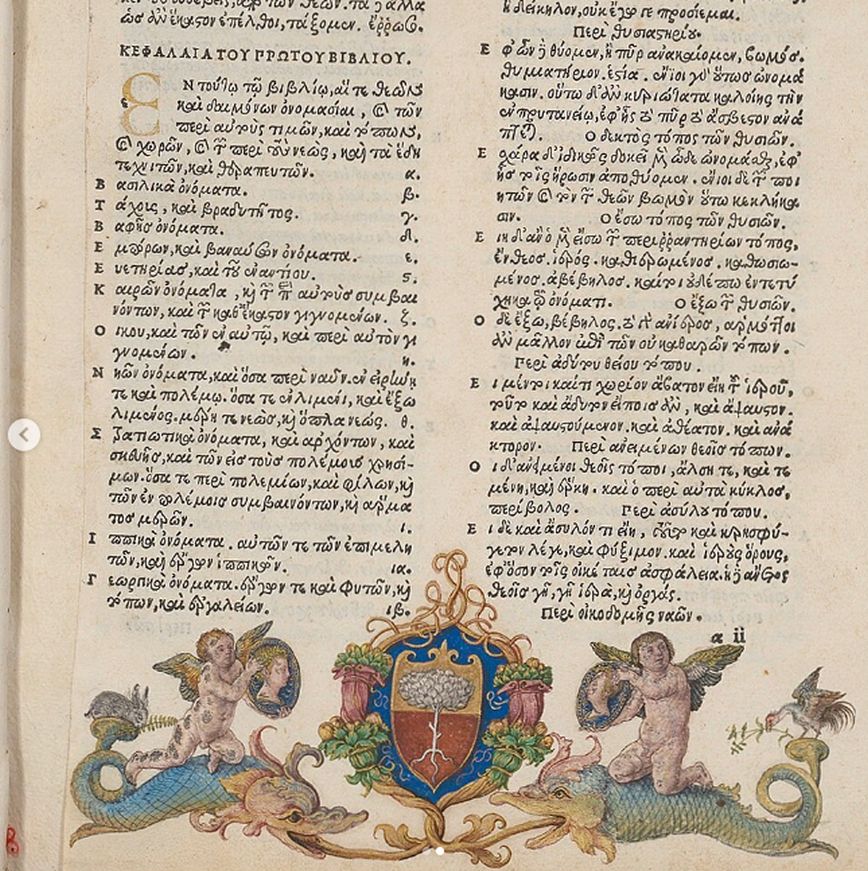 ὡς ἂν ἕκαστον ἐπέλθοι, τάξομεν. ἔρρωσο.
ΚΕΦΑΛΑΙΑ ΤΟΥ ΠΡΩΤΟΥ ΒΙΒΛΙΟΥ.
ΕΝ τούτῳ τῷ βιβλίῳ, αἵ τε θεῶν
καὶ δαιμόνων ὀνομασίαι, καὶ τῶν
περὶ αὐτοὺς τιμῶν, καὶ τόπων,
καὶ χορῶν, καὶ τῶν περὶ τοὺς νεώς, καὶ τὰ ἕδη
τεχνιτῶν, καὶ θεραπευτῶν. α.
Βασιλικὰ ὀνόματα. β.
Τάχους, καὶ βραδυτῆτος. γ.
Βαφῆς ὀνόματα. δ.
Ἐμπόρων, καὶ βαναύσων ὀνόματα. ε.
Εὐετηρίας, καὶ τοῦ ἐναντίου. ϛ.
Καιρῶν ὀνόματα, καὶ τῶν ἐπ' αὐτοὺς συμβαι
νόντων, καὶ τῶν καθ' ἕκαστον γιγνομένων. ζ.
Οἴκου, καὶ τῶν ἐν αὐτῷ, καὶ περὶ αὐτὸν γι
γνομένων. η.
Νηῶν ὀνόματα, καὶ ὅσα περὶ ναῦν. ἐν εἰρήνῃ
τε καὶ πολέμῳ. ὅσα τε ἐν λιμένι, καὶ ἔξω
λιμένος. μέρη τε νεὼς, καὶ ὅπλα νεώς. θ.
Στρατιωτικὰ ὀνόματα, καὶ ἀρχόντων, καὶ
σκευῆς, καὶ τῶν εἰς τοὺς πολέμους χρησί-
μων. ὅσα τε περὶ πολεμίων, καὶ φίλων, καὶ
τῶν ἐν πολέμοις συμβαινόντων, καὶ ἅρμα
τος μερῶν. ι.
Ἱππικὰ ὀνόματα. αὐτῶν τε τῶν ἐπιμελη
τῶν, καὶ ἔργων ἱππικῶν. ια.
Γεωργικὰ ὀνόματα. ἔργων τε καὶ φυτῶν, καὶ
τόπων, καὶ ἐργαλείων. ιβ.
δείκηλον, οὐκ ἔγωγε προσίεμαι.
Περὶ θυσιαστηρίου.
Ἐφ' ὧν δὲ θύομεν, ἢ πῦρ ἀνακαίομεν, βωμός.
θυμιατήριον. ἑστία. ἔνιοι γὰρ οὕτως ὠνομά
κασιν. οὕτω δ' ἂν κυριώτατα καλοίης τὴν
ἐν πρυτανείῳ, ἐφ' ἧς τὸ πῦρ τὸ ἄσβεστον ἀνά
πτεται. Ὁ δεκτὸς τόπος τῶν θυσιῶν.
Ἐσχάρα δ' ἰδικῶς δοκεῖ μὲν ὧδε ὠνομάσθαι, ἐφ'
ἧς τοῖς ἥρωσιν ἀποθύομεν. ἔνιοι δὲ τῶν ποι
ητῶν καὶ τὸν τῶν θεῶν βωμὸν οὕτω κεκλήκα
σιν. Ὁ ἔσω τόπος τῶν θυσιῶν.
Εἴη δ' ἂν ὁ μὲν εἴσω τῶν περιρραντηρίων τόπος,
ἔνθεος. ἱερός. καθιερωμένος. καθωσιω-
μένος. ἀβέβηλος. καίτοι οὐδέπω ἐντετύ
χηκα τῷ ὀνόματι. Ὁ ἔξω τῶν θυσιῶν.
Ὁ δὲ ἔξω, βέβηλος. ὁ γὰρ ἀνίερος, ἁρμόττοι
ἂν μᾶλλον ἐπὶ τῶν οὐ καθαρῶν τόπων.
Περὶ ἀδύτου θείου τόπου.
Εἰ μέντοι καί τι χωρίον ἄβατον εἴη τοῦ ἱεροῦ,
τοῦτο καὶ ἄδυτον εἴποις ἂν, καὶ ἄψαυστον.
καὶ ἀψαυστούμενον. καὶ ἀθέατον. καὶ ἀνά
κτορον. Περὶ ἀνειμένων θεοῖς τόπων.
Οἱ δ' ἀνειμένοι θεοῖς τόποι, ἄλση τε, καὶ τε
μένη, καὶ ἕρκη. καὶ ὁ περὶ αὐτὰ κύκλος,
περίβολος. Περὶ ἀσύλου τόπου.
Εἰ δὲ καὶ ἄσυλόν τι εἴη, τοῦτο καὶ κρησφύ-
γετον λέγε, καὶ φύξιμον. καὶ ἱεροὺς ὅρους,
ἐφ' ὅσον τοῖς οἰκέταις ἀσφάλεια. ἡ δὲ ἄνετος
θεοῖς γῆ, γῆ ἱερὰ, καὶ ὀργάς.
Περὶ οἰκοδομῆς ναῶν.
α ii